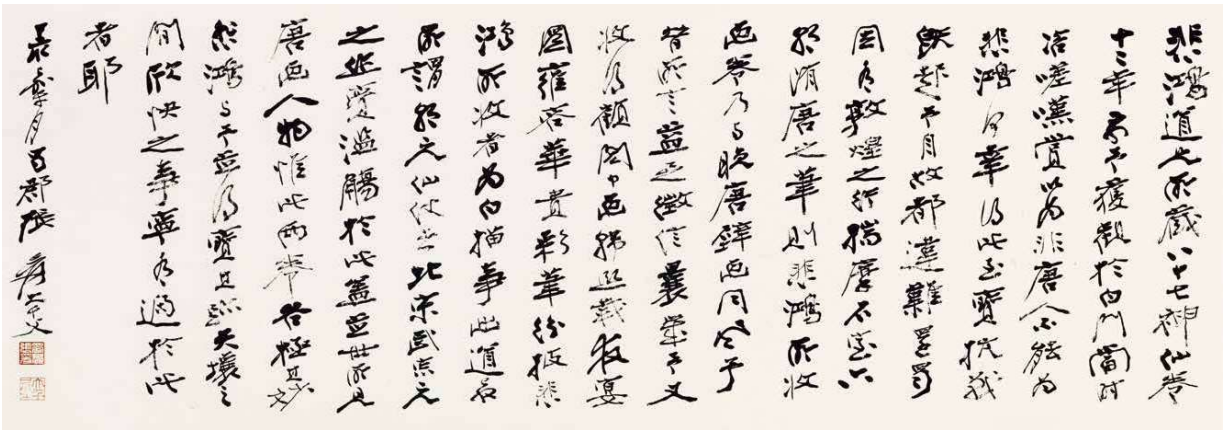 悲鴻道兄所藏八十七神仙卷
十二年前予獲觀於白門當時
咨嗟嘆賞以為非唐人不能為
悲鴻何幸得此至寶抗戰
既起予自故都違難還蜀
因為敦煌之行揣摩石室六
朝隋唐之筆則悲鴻所收
畫卷乃與晚唐壁畫同風予
昔所言益足徵信曩歲予又
收得顧閎中畫韓熙載夜宴
圖雍容華貴彩筆紛披悲
鴻所收者為白描事出道名
所謂朝元仙仗者北宋武宗元
之作實濫觴於此蓋並世所見
唐畫人物惟此兩卷各極其妙
悲鴻與予並得寶其跡天壤之
間欣快之事寧有過於此
者耶
月蜀郡張爰大千父